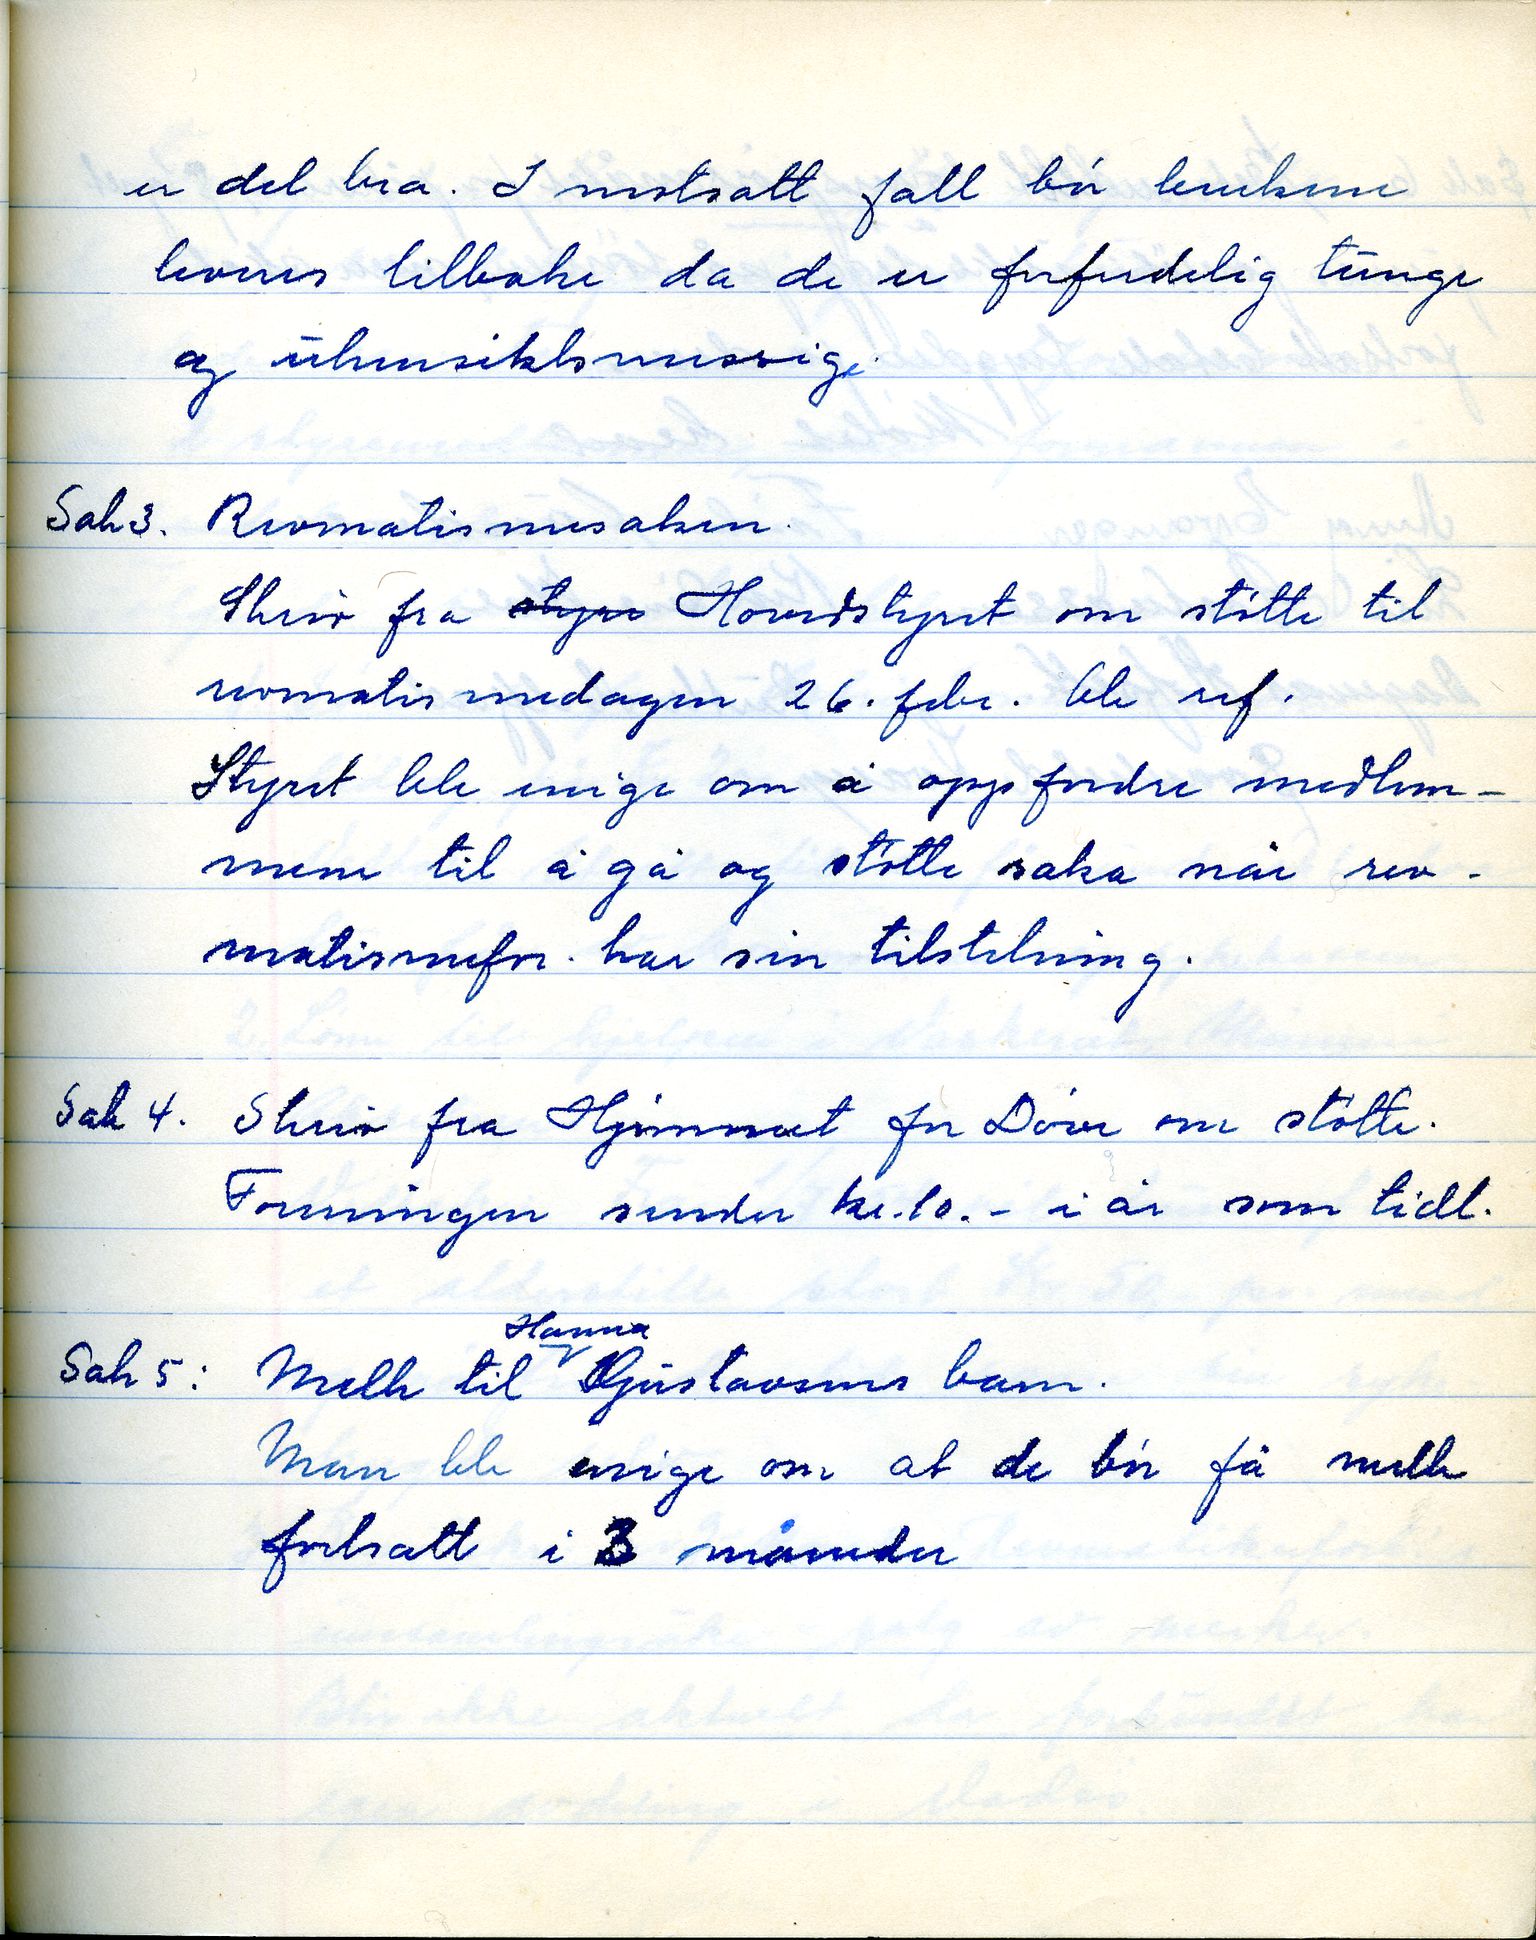 er det bra. I motsatt fall bör benkene
leveres tilbake da de er forferdelig tunge
og uhensiktsmessige.
Sak 3. Revmatismesaken.
Skriv fra styre Hovedstyret om støtte til
revmatismedagen 26. febr. ble ref.
Styret ble enige om å oppfordre medlem-
mene til å gå og støtte saka når rev-
matismefor. har sin tilstelning.
Sak 4. Skriv fra Hjemmet for Døve om støtte.
Foreningen sender kr. 10.- i år som tidl.
Hanna
Sak 5: Melk til Gustavsens barn.
Man ble enige om at de bør få melk
fortsatt i 3 måneder